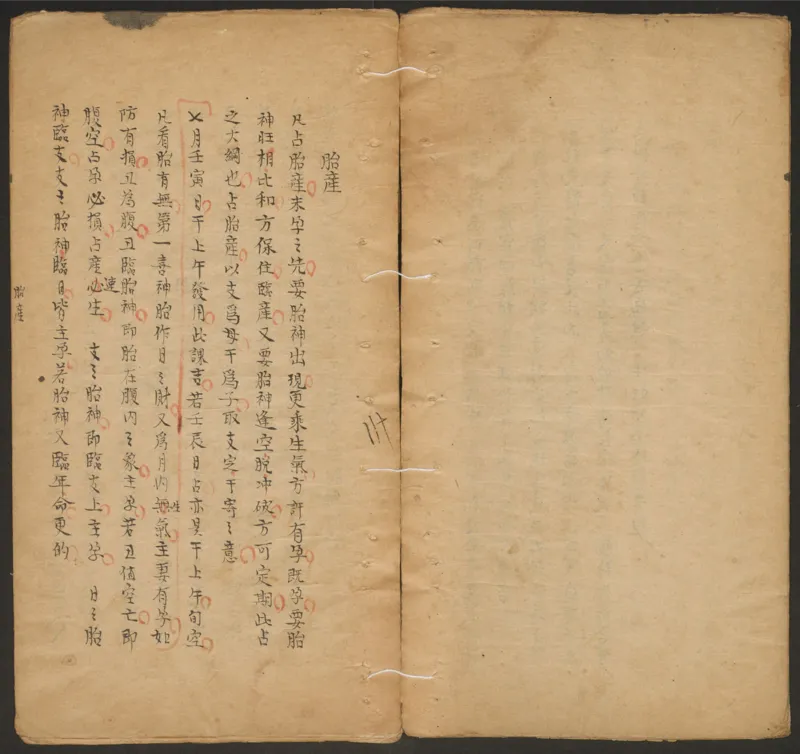 胎產
凡占胎產未孕之先要胎神出現更乘生氣方許有孕既孕要胎
神旺相比和方保住臨產又要胎神逢空脫冲破方可定期此占
之大綱也占胎產以支爲母干爲子取支定干寄之意
月壬寅日干上午發用此課吉若壬辰日占亦是干上午旬空
凡看胎有無第一喜神胎作日之財又爲月內生氣主妻有孕如
防有損丑為腹丑臨胎神即胎在腹內之象主孕若丑值空亡即
腹空占孕必損占產必速生 支之胎神即臨支上主孕 日之胎
神臨支支之胎神臨日皆主孕若胎神又臨年命更的
胎產